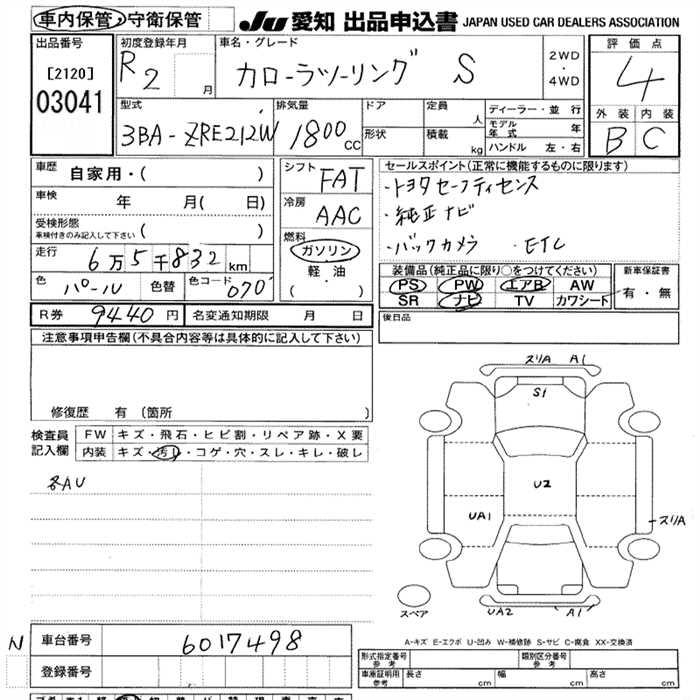 車内保管・守衛保管
JU 愛知 出品申込書 JAPAN USED CAR DEALERS ASSOCIATION
出品番号
[2120]
03041
初度登録年月
R2 月
車名・グレード
カローラツーリング S
2WD
・
4WD
評価点
4
外装 内装
B C
型式
3BA-ZRE212W
排気量
1800 cc
ドア
形状
定員 人
積載 kg
ディーラー・並行
モデル年式 年
ハンドル 左・右
車歴 自家用・( )
車検 年 月( 日)
受検形態
車検付きのみ記入して下さい ( )
走行 6万5千832 km
色 パール 色替 色コード 070
シフト FAT
冷房 AAC
燃料
ガソリン
軽油
( ・ )
セールスポイント(正常に機能するものに限ります)
・トヨタセーフティセンス
・純正ナビ
・バックカメラ ・ETC
装備品(純正品に限り○をつけてください)
PS PW エアB AW
SR ナビ TV カワシート
新車保証書
有・無
R券 9440円 名変通知期限 月 日
後日品
注意事項申告欄(不具合内容等は具体的に記入して下さい)
修復歴 有(箇所 )
検査員記入欄
FW キズ・飛石・ヒビ割・リペア跡・X要
内装 キズ・汚レ・コゲ・穴・スレ・キレ・破レ
各AU
スリA A1
S1
U2
UA1
スリA
UA2 A1
スペア
A-キズ E-エクボ U-凹み W-補修跡 S-サビ C-腐食 XX-交換済
N
車台番号 6017498
登録番号
形式指定番号 参考
類別区分番号 参考
車庫証明用 参考 長さ cm 幅 cm 高さ cm